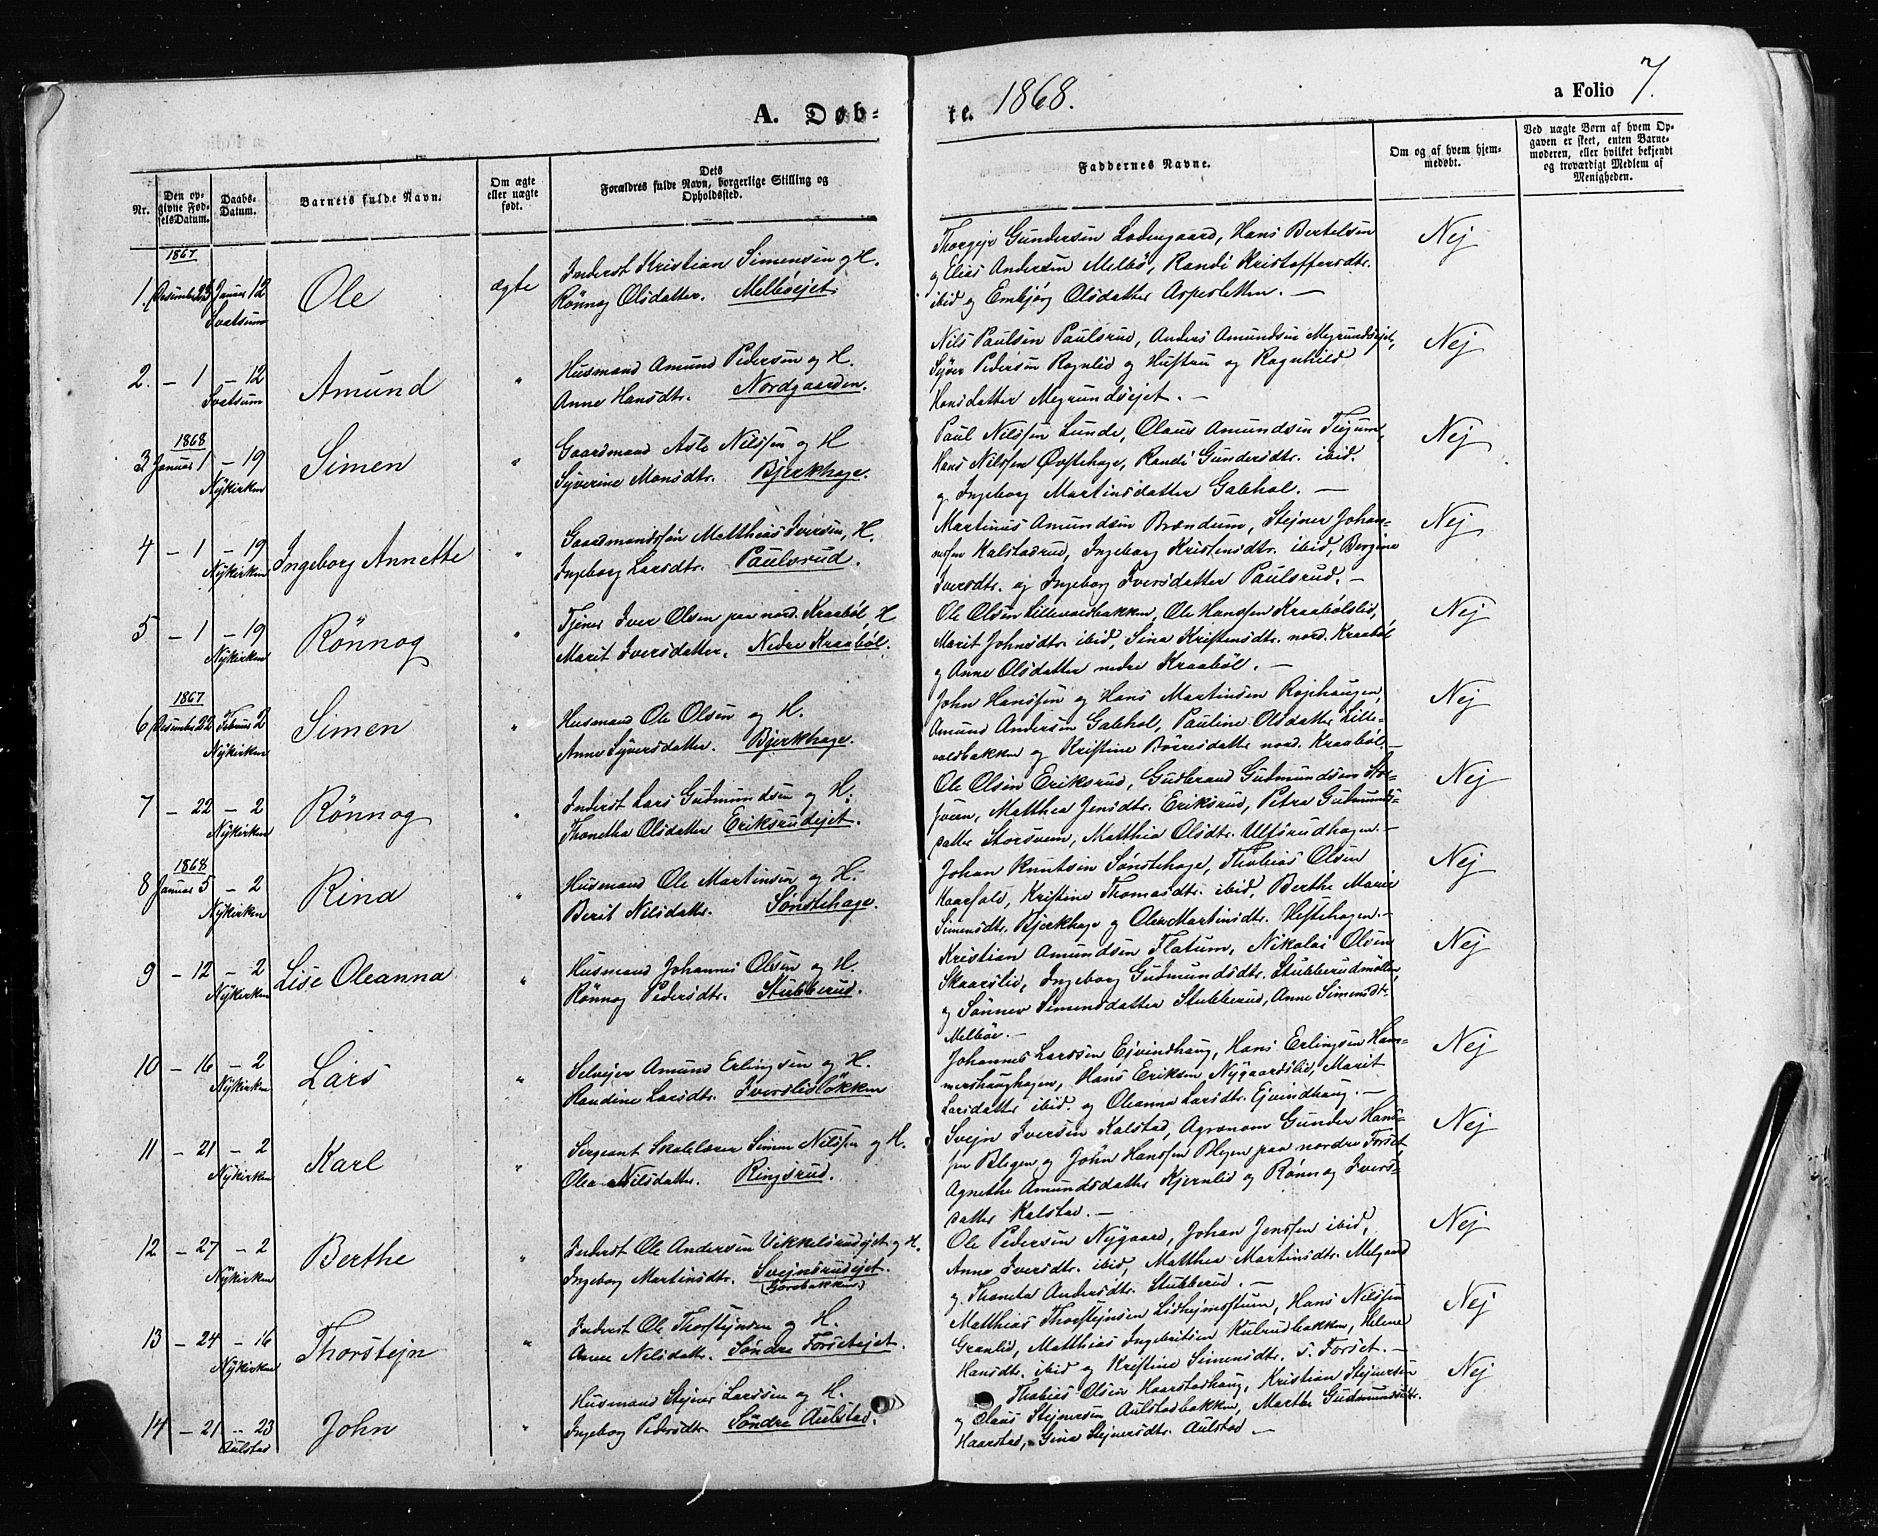 A. Døbte. 1868.
a Folio 7.
Nr.
Den opgivne Fødselsdatum.
Daabs-Datum.
Barnets fulde Navn.
Om ægte eller uægte født.
Dets Forældres fulde Navn, borgerlige Stilling og Opholdssted.
Faddernes Navne.
Om og af hvem hjemmedøbt.
Ved uægte Børn af hvem Opgaven er skeet, enten Barnemoderen, eller hvilket bekjendt og troværdigt Medlem af Menigheden.
1867
1. Desember 23 Januar 12 Svatsum Ole ægte
Inderst Kristian Simensen og H.
Rönnog Olsdatter. Melböejet.
Thorgejr Gundersen Lodengaard, Hans Bertelsen
og Elias Andersen Melbö, Randi Kristoffersdtr.
ibid og Embjörg Olsdatter Aspesletten. —
Nej
2. – 1 – 12 Svatsum Amund "
Husmand Amund Pedersen og H.
Anne Hansdtr. Nordgaarden.
Nils Paulsen Paulsrud, Anders Amundsen Megrundsejet,
Syver Pedersen Rognlid og Hustru og Ragnhild
Hansdatter Megrundsejet. —
Nej
1868
3 Januar 1 – 19 Nÿkirken Simen "
Gaardmand Asle Nilssen og H
Syverine Monsdtr. Bjerkhage.
Paul Nilssen Lunde, Olaus Amundsen
Hans Nilssen Övstehage, Randi Gundersdtr. ibid.
og Ingeborg Martinsdatter Galhol. —
Nej
4 – 1 – 19 Nÿkirken Ingeborg Annette "
Gaardmandssön Matthias Iversen, H.
Ingeborg Larsdtr. Paulsrud.
Martinus Amundsen Brændum, Stejner Johan-
nesen Kalstadrud, Ingeborg Kristensdtr. ibid, Bergine
Iversdtr. og Ingeborg Iversdatter Paulsrud. —
Nej
5 – 1 – 19 Nÿkirken Rönnog "
Tjener Iver Olsen paa nord. Kraaböl, H
Marit Iversdatter. Nedre Kraaböl.
Ole Olsen Lillevoldbakken, Ole Hanssen Kraabölslid,
Marit Johnsdtr. ibid, Sina Kristensdtr. nord. Kraaböl
og Anne Olsdatter nedre Kraaböl. —
Nej
1867
6 Desember 22 Februar 2 Nÿkirken Simen "
Husmand Ole Olsen og H.
Anne Syversdatter. Bjerkhage.
John Hanssen og Hans Martinsen Rophaugen,
Amund Andersen Galhol, Pauline Olsdatter Lille-
voldbakken og Kristine Börresdatter nord. Kraaböl. —
Nej
7 – 22 – 2 Nÿkirken Rönnog "
Inderst Lars Gudmundsen og H.
Thonetha Olsdatter Eriksrudejet.
Ole Olsen Eriksrud, Gudbrand Gudmundsen Stor-
sveen, Matthea Jensdtr. Eriksrud, Petra Gudmunds-
datter Storsveen, Matthia Olsdtr. Ulfsrudhagen. —
Nej
1868
8 Januar 5 – 2 Nÿkirken Rina "
Husmand Ole Martinsen og H.
Berit Nilsdatter. Sönstehage.
Johan Knutsen Sönstehage, Thobias Olsen
Kristine Thomasdtr. ibid, Berthe Marie
Simensdtr. Bjerkhage og Olea Martinsdtr. Heftehagen. —
Nej
9 – 12 – 2 Nÿkirken Lise Oleanna "
Husmand Johannes Olsen og H.
Rönnog Pedersdtr. Stubberud.
Kristian Amundsen Flatum, Nikolai Olsen
Skaarslid, Ingeborg Gudmundsdtr. Stubberudmöllen,
og Sönnev Simensdatter Stubberud, Anne Simensdtr
Melböe. —
Nej
10 – 16 – 2 Nÿkirken Lars "
Selvejer Amund Erlingsen og H.
Handine Larsdtr. Iverslidlökken
Johannes Larssen Ejvindhaug, Hans Erlingsen Ham-
mershaughagen, Hans Eriksen Nygaardslid, Marit
Larsdatter ibid. og Oleanna Larsdtr. Ejvindhaug. —
Nej
11 – 21 – 2 Nÿkirken Karl "
Sergeant Skolelærer Simen Nilssen og H.
Olea Nilsdatter. Ringsrud.
Svejn Iversen Kalstad, Agronom Gunder Hans-
sen Blegen og John Hanssen Blegen paa nordre Forset
Agnethe Amundsdatter Kjernlid og Rönnog Ivers-
datter Kalstad. —
Nej
12 – 27 – 2 Nÿkirken Berthe "
Inderst Ole Andersen Vikkelsrudejet og H.
Ingeborg Martinsdtr. Svejnsrudejet.
Ole Pedersen Nygaard, Johan Jenssen ibid,
Anne Iversdtr. ibid, Matthea Martinsdtr. Melgaard
og Thoneta Andersdtr. Stubberud. —
Nej
13 – 24 – 16 Nÿkirken Thorstejn "
Inderst Ole Thorstejnsen og H.
Anne Nilsdatter. Söndre Forsetejet.
Matthias Thorstejnsen Lidhejmsstuen, Hans Nilssen
Granlid, Matthias Ingebritsen Kulrudbakken, Helene
Hansdtr. ibid og Kristine Simensdtr. s. Forset. —
Nej
14 – 21 – 23 Aulstad John "
Husmand Stejner Larssen og H.
Ingeborg Pedersdtr. Söndre Aulstad.
Thobias Olsen Haarstadhaug, Kristian Stejnersen
og Olaus Stejnersen Aulstadbakken, Marthe Gudmundsdtr.
Haarstad, Gina Stejnersdtr. Aulstad —
Nej